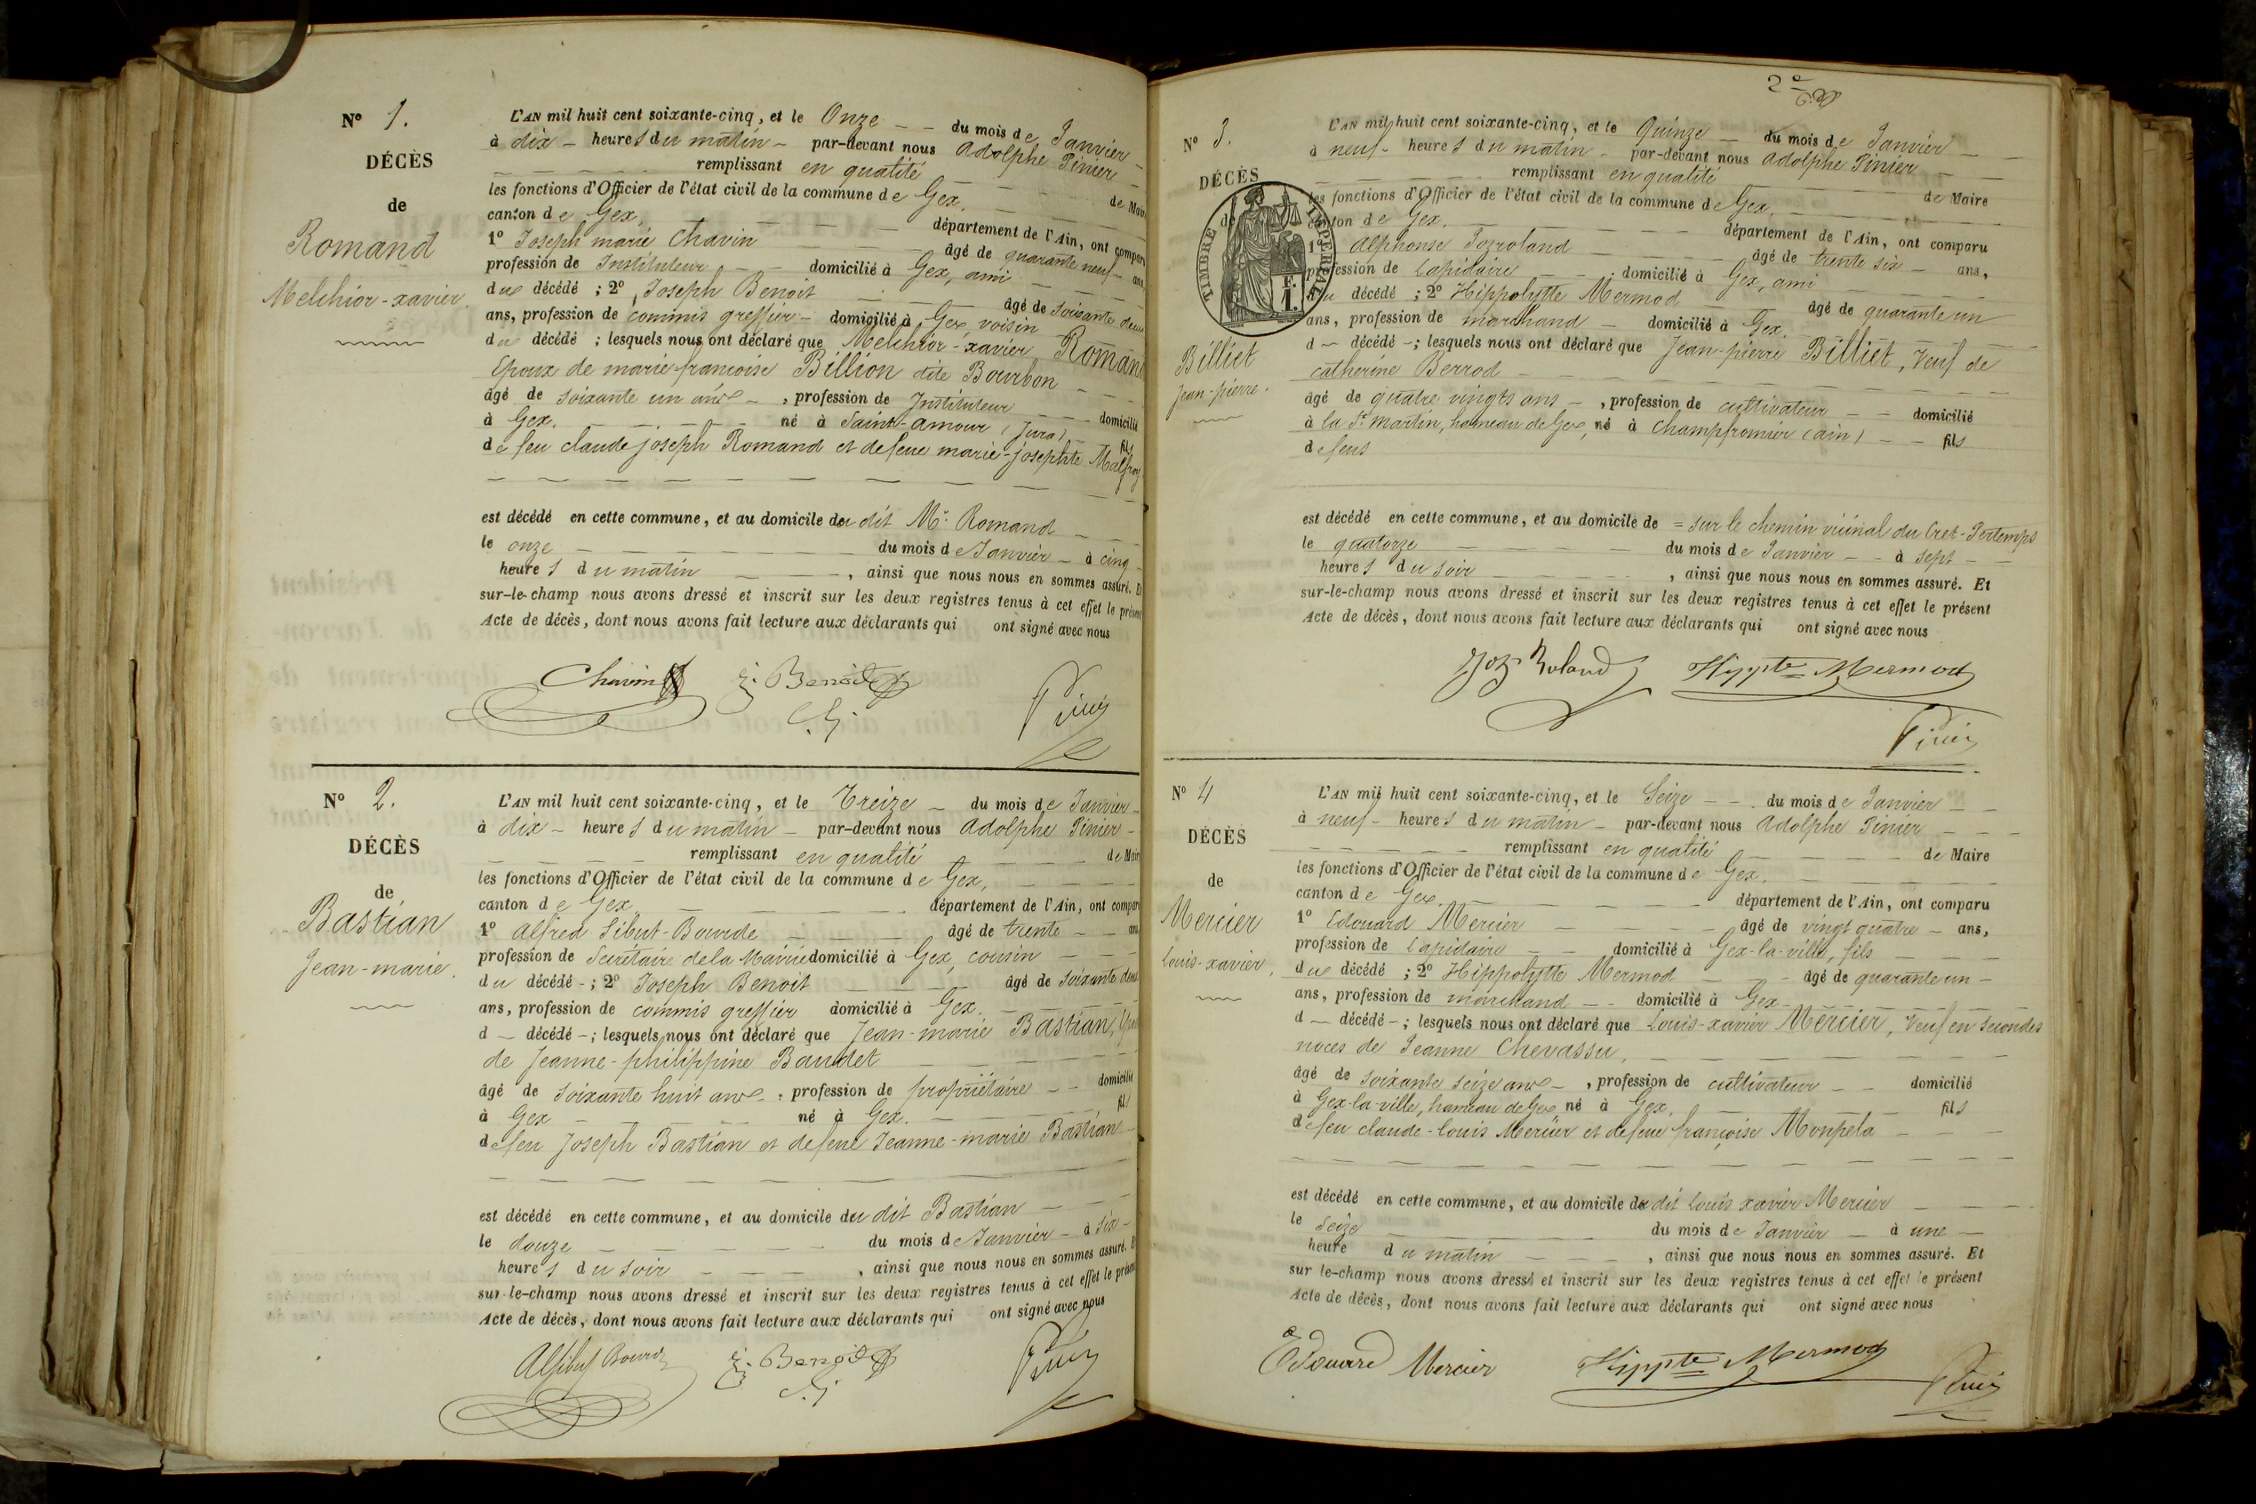 N° 1.
DÉCÈS
de
Romand
Melchior-xavier
L'AN mil huit cent soixante-cinq, et le Onze — — du mois de Janvier —
à dix — heures du matin — par-devant nous Adolphe Pinier —
— — — — remplissant en qualité — — — de Mai
les fonctions d'Officier de l'état civil de la commune de Gex. — —
canton de Gex, — — — département de l'Ain, ont compar
1° Joseph marie Chavin — — — âgé de quarante neuf — an
profession de Instituteur — — domicilié à Gex, ami — —
du décédé ; 2° Joseph Benoit — — — âgé de soixante deux
ans, profession de commis greffier — domicilié à Gex, voisin —
du décédé ; lesquels nous ont déclaré que Melchior-xavier Romand
Epoux de marie françoise Billion dite Bourbon — —
âgé de soixante un ans — , profession de Instituteur — — domicilié
à Gex. — — — né à Saint-amour (Jura) — fils
de feu claude joseph Romand et de feue marie-josephte Malfroy
est décédé en cette commune, et au domicile du dit Mr Romand — —
le onze — — — du mois de Janvier — à cinq —
heures du matin — — — , ainsi que nous nous en sommes assuré. E
sur-le-champ nous avons dressé et inscrit sur les deux registres tenus à cet effet le présen
Acte de décès, dont nous avons fait lecture aux déclarants qui ont signé avec nous
Chavin J. Benoit Pinier
C. G.
N° 2.
DÉCÈS
de
Bastian
Jean-marie.
L'AN mil huit cent soixante-cinq, et le Treize — du mois de Janvier —
à dix — heures du matin — par-devant nous Adolphe Pinier —
— — — — remplissant en qualité — — — de Mair
les fonctions d'Officier de l'état civil de la commune de Gex, — —
canton de Gex — — — département de l'Ain, ont compar
1° alfred Sibut-Bourde — — — âgé de trente — — an
profession de Secrétaire de la Mairie domicilié à Gex, cousin — —
du décédé - ; 2° Joseph Benoit — — — âgé de soixante deux
ans, profession de commis greffier domicilié à Gex. — —
d — décédé - ; lesquels nous ont déclaré que Jean-marie Bastian, Epoux
de Jeanne-philippine Baudet — —
âgé de soixante huit ans - , profession de propriétaire — — domicilié
à Gex — — — né à Gex. — — — fils
de feu Joseph Bastian et de feue Jeanne-marie Bastian —
est décédé en cette commune, et au domicile du dit Bastian — —
le douze — — — du mois de Janvier — à six —
heures du soir — — — , ainsi que nous nous en sommes assuré. E
sur-le-champ nous avons dressé et inscrit sur les deux registres tenus à cet effet le présen
Acte de décès, dont nous avons fait lecture aux déclarants qui ont signé avec nous
J. Benoit Pinier
C. G.
2e
N° 3.
DÉCÈS
de
TIMBRE IMPERIAL
1 F.
Billiet
Jean-pierre.
L'AN mil huit cent soixante-cinq, et le Quinze — du mois de Janvier — —
à neuf — heures du matin — par-devant nous Adolphe Pinier — —
— — — — remplissant en qualité — — — de Maire
les fonctions d'Officier de l'état civil de la commune de Gex, — —
canton de Gex. — — — département de l'Ain, ont comparu
1° Alphonse Jozroland — — — âgé de trente six — ans,
profession de Lapidaire — — domicilié à Gex, ami — —
du décédé ; 2° Hippolytte Mermod — — âgé de quarante un
ans, profession de marchand — domicilié à Gex. — —
d — décédé - ; lesquels nous ont déclaré que Jean-pierre Billiet, Veuf de
catherine Berrod — — —
âgé de quatre vingts ans — , profession de cultivateur — — domicilié
à la St Martin, hameau de Gex, né à Champfromier (ain) — — fils
de feus
est décédé en cette commune, et au domicile de = sur le chemin vicinal du Cret-Pertemps
le quatorze — — — du mois de Janvier — — à sept —
heures du soir — — — , ainsi que nous nous en sommes assuré. Et
sur-le-champ nous avons dressé et inscrit sur les deux registres tenus à cet effet le présent
Acte de décès, dont nous avons fait lecture aux déclarants qui ont signé avec nous
Joz Roland Hyppte Mermod
Pinier
N° 4
DÉCÈS
de
Mercier
Louis-xavier.
L'AN mil huit cent soixante-cinq, et le Seize — — du mois de Janvier — —
à neuf — heures du matin — par-devant nous Adolphe Pinier — —
— — — — remplissant en qualité — — — de Maire
les fonctions d'Officier de l'état civil de la commune de Gex. — —
canton de Gex. — — — département de l'Ain, ont comparu
1° Edouard Mercier — — — âgé de vingt quatre — ans,
profession de Lapidaire — — domicilié à Gex-la-ville, fils — —
du décédé ; 2° Hippolytte Mermod — — âgé de quarante un —
ans, profession de marchand — — domicilié à Gex — —
d — décédé - ; lesquels nous ont déclaré que Louis-xavier Mercier, Veuf en secondes
noces de Jeanne Chevassu, — — —
âgé de soixante seize ans — , profession de cultivateur — — domicilié
à Gex-la-ville, hameau de Gex, né à Gex. — — — fils
de feu claude-louis Mercier et de feue françoise Monpela — —
est décédé en cette commune, et au domicile du dit Louis xavier Mercier — —
le seize — — — du mois de Janvier — à une —
heure du matin — — — , ainsi que nous nous en sommes assuré. Et
sur le-champ nous avons dressé et inscrit sur les deux registres tenus à cet effet le présent
Acte de décès, dont nous avons fait lecture aux déclarants qui ont signé avec nous
Edouard Mercier Hyppte Mermod Pinier